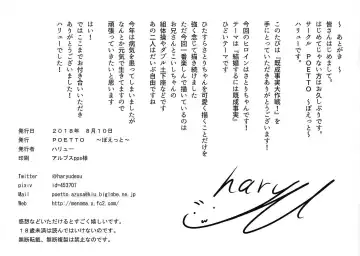 ～あとがき～
皆さんはじめまして。
はじめてじゃない方はお久しぶりです。
サークル　POETTO　～ぽえっと～
ハリューです。
このたびは「既成事実大作戦！」を
手にとっていただきありがとうございます！
今回のヒロインはさとりちゃんです！
テーマは「結婚するには既成事実」
ひどいテーマです。
ひたすらさとりちゃんを可愛く描くことだけを
強く念じて描き続けました
ただ今回一番楽しんで描いているのは
お兄さんとこいしちゃんの
組体操やダブル土下座などです
あの二人はだいぶ自由ですね
今年は病気を患ってしまいましたが
なんとか元気で生きてますので
頑張っていきたいと思います
はい！
ではここまでお付き合いいただき
ありがとうございました！
ハリューでした！
haryu
発行日　2018年 8月10日
発行　POETTO　～ぽえっと～
発行者　ハリュー
印刷　アルプスppo様
Twitter　@haryudeau
pixiv　id=453701
Mail　poetto.azusa@kiu.biglobe.ne.jp
Web　http://menmema.x.fc2.com/
感想などいただけるとすごく嬉しいです。
18歳未満は読んではいけないのです。
無断転載、無断複製は禁なのです。